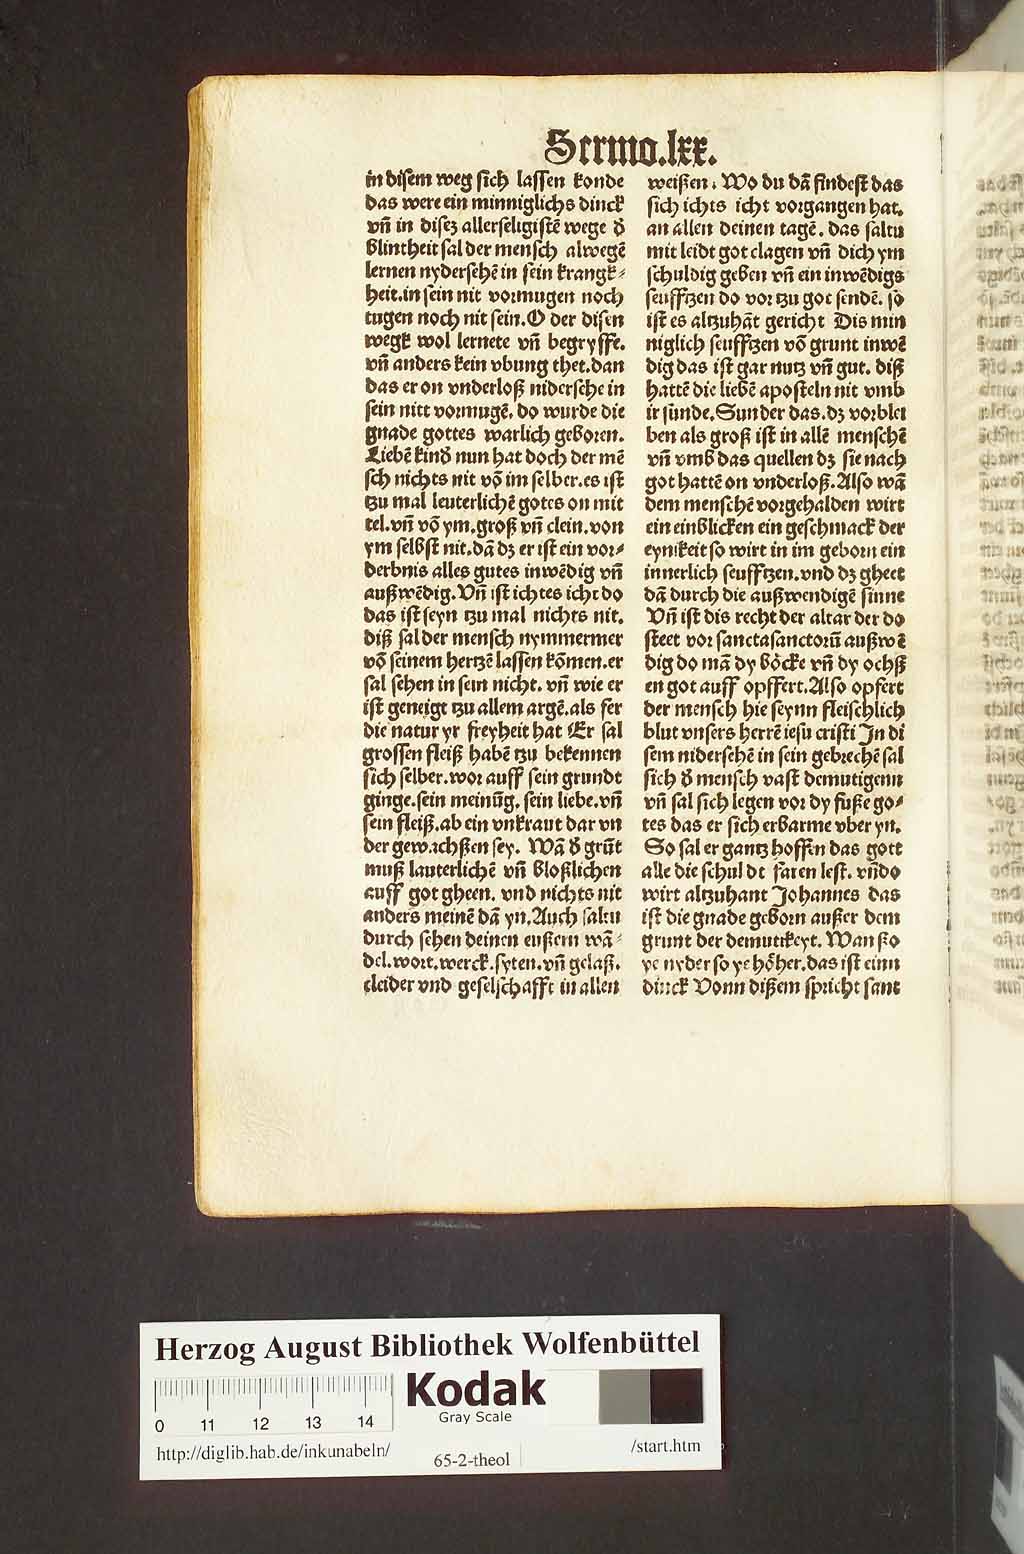 Sermo.lxx.
in disem weg sich lassen konde
das were ein minniglichs dinck
vn̄ in disez allerseligistē wege d̕
blintheit sal der mensch alwegē
lernen nydersehē in sein krangk⸗
heit.in sein nit vormugen noch
tugen noch nit sein.O der disen
wegk wol lernete vn̄ begryffe.
vn̄ anders kein vbung thet.dan
das er on vnderloß nidersehe in
sein nitt vormugē. do wurde die
gnade gottes warlich geboren.
Liebē kind̕ nun hat doch der mē
sch nichts nit vō im selber.es ist
tzu mal leuterlichē gotes on mit
tel.vn̄ vō ym.groß vn̄ clein.von
ym selbst nit.dā dz er ist ein vor⸗
derbnis alles gutes inwēdig vn̄
außwēdig.Vn̄ ist ichtes icht do
das ist seyn tzu mal nichts nit.
diß sal der mensch nymmermer
vō seinem hertzē lassen kōmen.er
sal sehen in sein nicht. vn̄ wie er
ist geneigt tzu allem argē.als fer
die natur yr freyheit hat Er sal
grossen fleiß habē tzu bekennen
sich selber.wor auff sein grundt
ginge.sein meinūg. sein liebe.vn̄
sein fleiß.ab ein vnkraut dar vn
der gewachßen sey. Wā d̕ grūt
muß lauterlichē vn̄ bloßlichen
auff got gheen. vnd nichts nit
anders meinē dā yn.Auch saltu
durch sehen deinen eußern wā⸗
del.wort.werck.syten.vn̄ gelaß.
cleider vnd geselschafft in allen
weißen. Wo du dā findest das
sich ichts icht vorgangen hat.
an allen deinen tagē. das saltu
mit leidt got clagen vn̄ dich ym
schuldig geben vn̄ ein inwēdigs
seufftzen do vor tzu got sendē. so
ist es altzuhāt gericht Dis min
niglich seufftzen vō grunt inwē
dig das ist gar nutz vn̄ gut. diß
hattē die liebē aposteln nit vmb
ir sünde.Sunder das.dz vorblei
ben als groß ist in allē menschē
vn̄ vmb das quellen dz sie nach
got hattē on vnderloß.Also wā
dem menschē vorgehalden wirt
ein einblicken ein geschmack der
eynikeit so wirt in im geborn ein
innerlich seufftzen.vnd dz gheet
dā durch die außwendigē sinne
Vn̄ ist dis recht der altar der do
steet vor sanctasanctorū außwē
dig do mā dy böcke vn̄ dy ochß
en got auff opffert.Also opfert
der mensch hie seynn fleischlich
blut vnsers herrē iesu cristi In di
sem nidersehē in sein gebrechē sal
sich d̕ mensch vast demutigenn
vn̄ sal sich legen vor dy fuße go⸗
tes das er sich erbarme vber yn.
So sal er gantz hoffen das gott
alle die schuldt faren lest. vn̄do
wirt altzuhant Johannes das
ist die gnade geborn außer dem
grunt der demutikeyt. Wan ßo
ye nyder so ye höher.das ist einn
dinck Vonn dißem spricht sant
Herzog August Bibliothek Wolfenbüttel
Kodak
Gray Scale
0 11 12 13 14
http://diglib.hab.de/inkunabeln/
65-2-theol
/start.htm